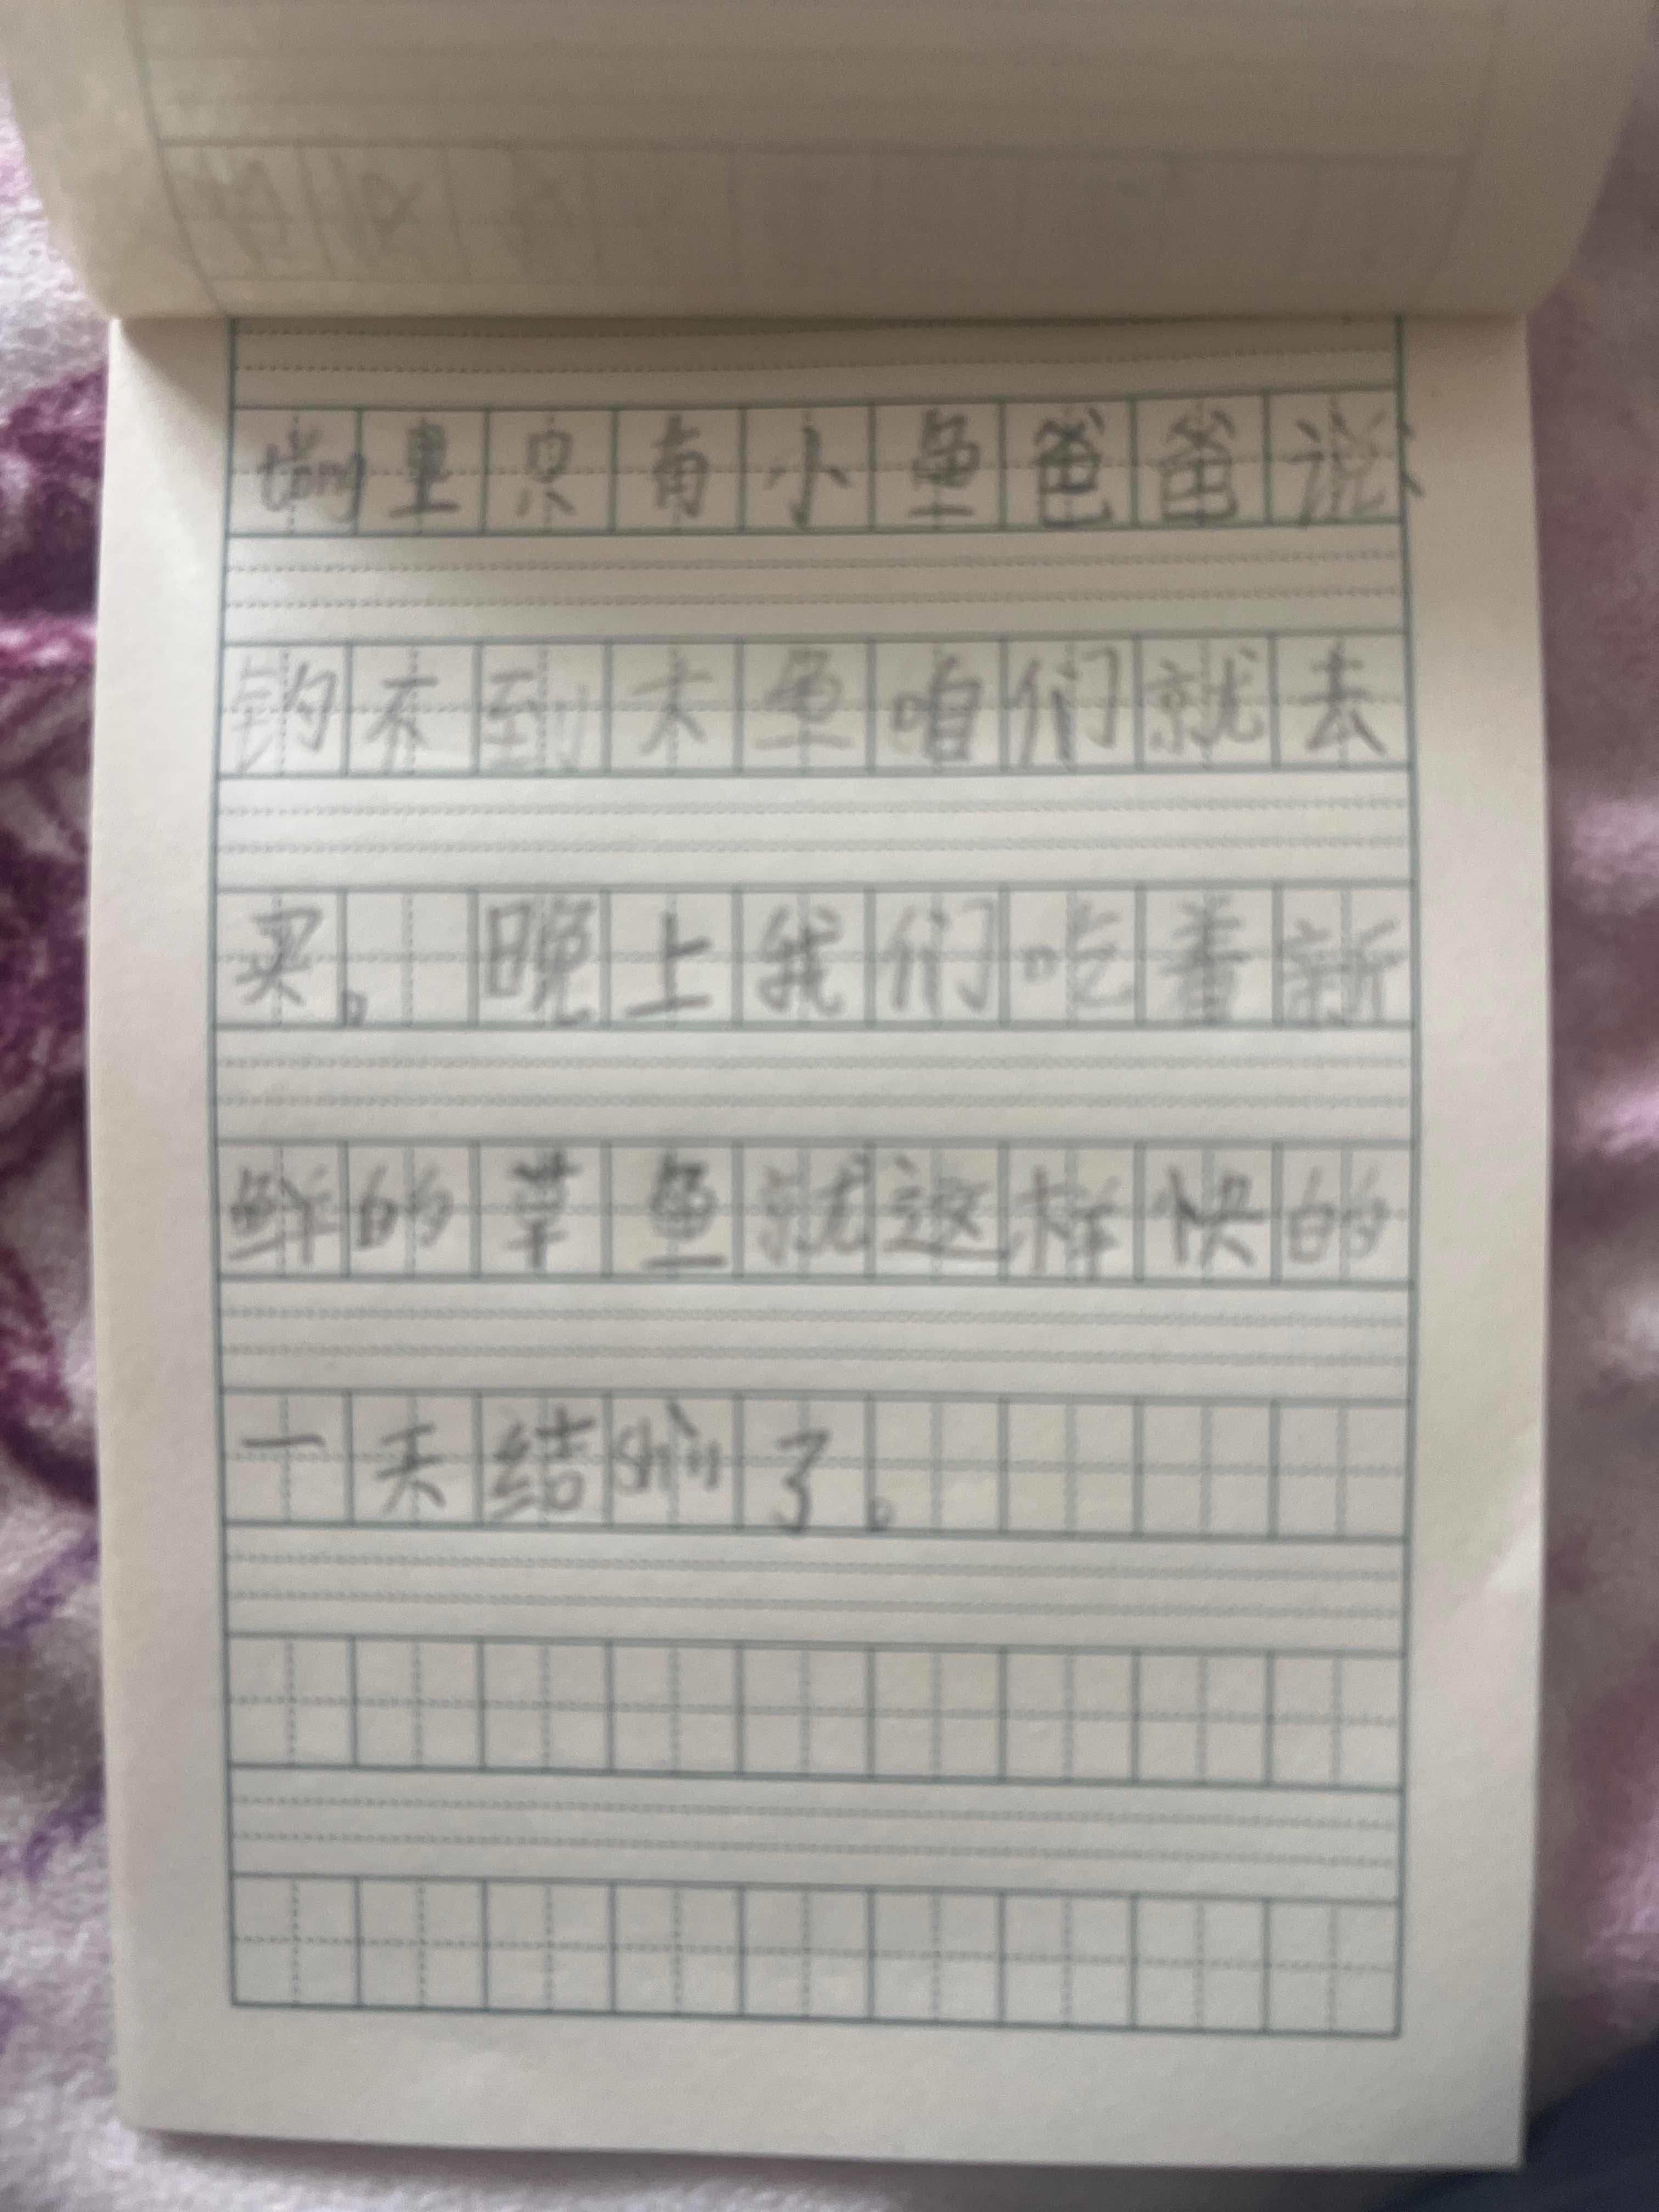 táng里只有小鱼爸爸说、
钓不到大鱼咱们就去
买。晚上我们吃着新
鲜的草鱼就这样快的
一天结shù了。